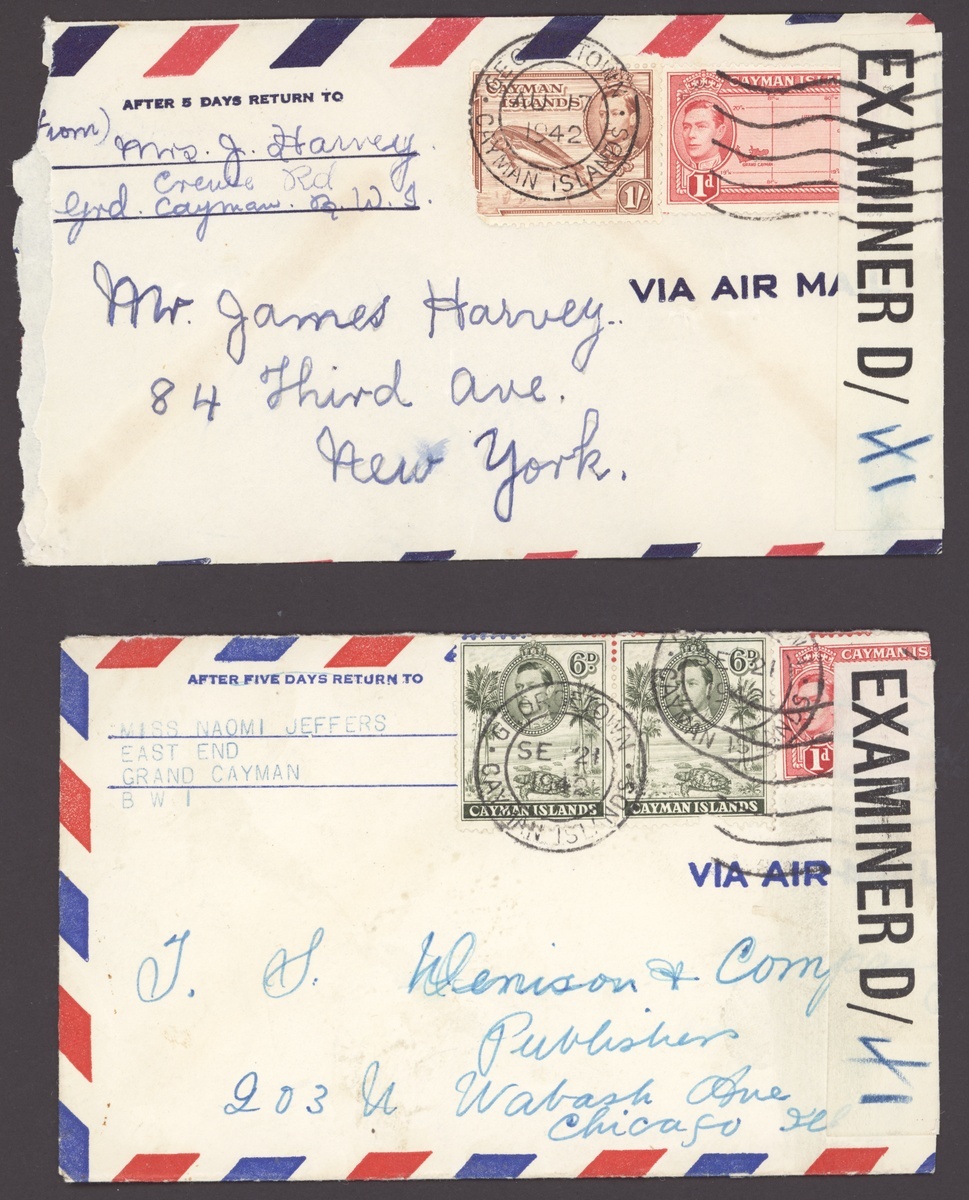 AFTER 5 DAYS RETURN TO
From)
Mrs. J. Harvey.
Rd
Grd. Cayman. B. W. I.
CAYMAN
ISLANDS
1/-
GEORGE TOWN
1942
CAYMAN ISLANDS
CAYMAN ISL
GRAND CAYMAN
1d
VIA AIR MA
Mr. James Harvey..
84 Third Ave.
New York.
EXAMINER D/
XI
AFTER FIVE DAYS RETURN TO
MISS NAOMI JEFFERS
EAST END
GRAND CAYMAN
B W I
6D.
CAYMAN ISLANDS
6D.
CAYMAN ISLANDS
GEORGE TOWN
SE 21
1942
CAYMAN ISLANDS
CAYMAN IS
1d
VIA AIR
T. S. Denison & Comp
Publishers
203 N Wabash Ave
Chicago Il
EXAMINER D/
XI